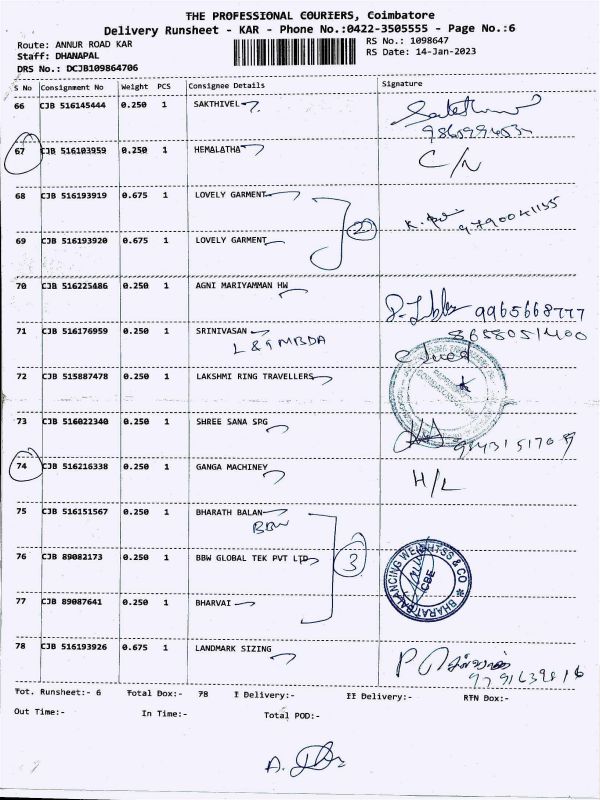 THE PROFESSIONAL COURIERS, Coimbatore
Delivery Runsheet - KAR - Phone No.:0422-3505555 - Page No.:6
Route: ANNUR ROAD KAR RS No.: 1098647
Staff: DHANAPAL RS Date: 14-Jan-2023
DRS No.: DCJB109864706
S No Consignment No Weight PCS Consignee Details Signature
66 CJB 516145444 0.250 1 SAKTHIVEL
67 CJB 516103959 0.250 1 HEMALATHA C/N
68 CJB 516193919 0.675 1 LOVELY GARMENT
2
69 CJB 516193920 0.675 1 LOVELY GARMENT
70 CJB 516225486 0.250 1 AGNI MARIYAMMAN HW
9965668777
71 CJB 516176959 0.250 1 SRINIVASAN 8658051400
72 CJB 515887478 0.250 1 LAKSHMI RING TRAVELLERS
73 CJB 516022340 0.250 1 SHREE SANA SPG
74 CJB 516216338 0.250 1 GANGA MACHINEY H/L
75 CJB 516151567 0.250 1 BHARATH BALAN
BBW
76 CJB 89082173 0.250 1 BBW GLOBAL TEK PVT LTD 3
BHARAT BALANCING WEIGHTSS & CO
CBE
77 CJB 89087641 0.250 1 BHARVAI
78 CJB 516193926 0.675 1 LANDMARK SIZING
Tot. Runsheet:- 6 Total Box:- 78 I Delivery:- II Delivery:- RTN Box:-
Out Time:- In Time:- Total POD:-